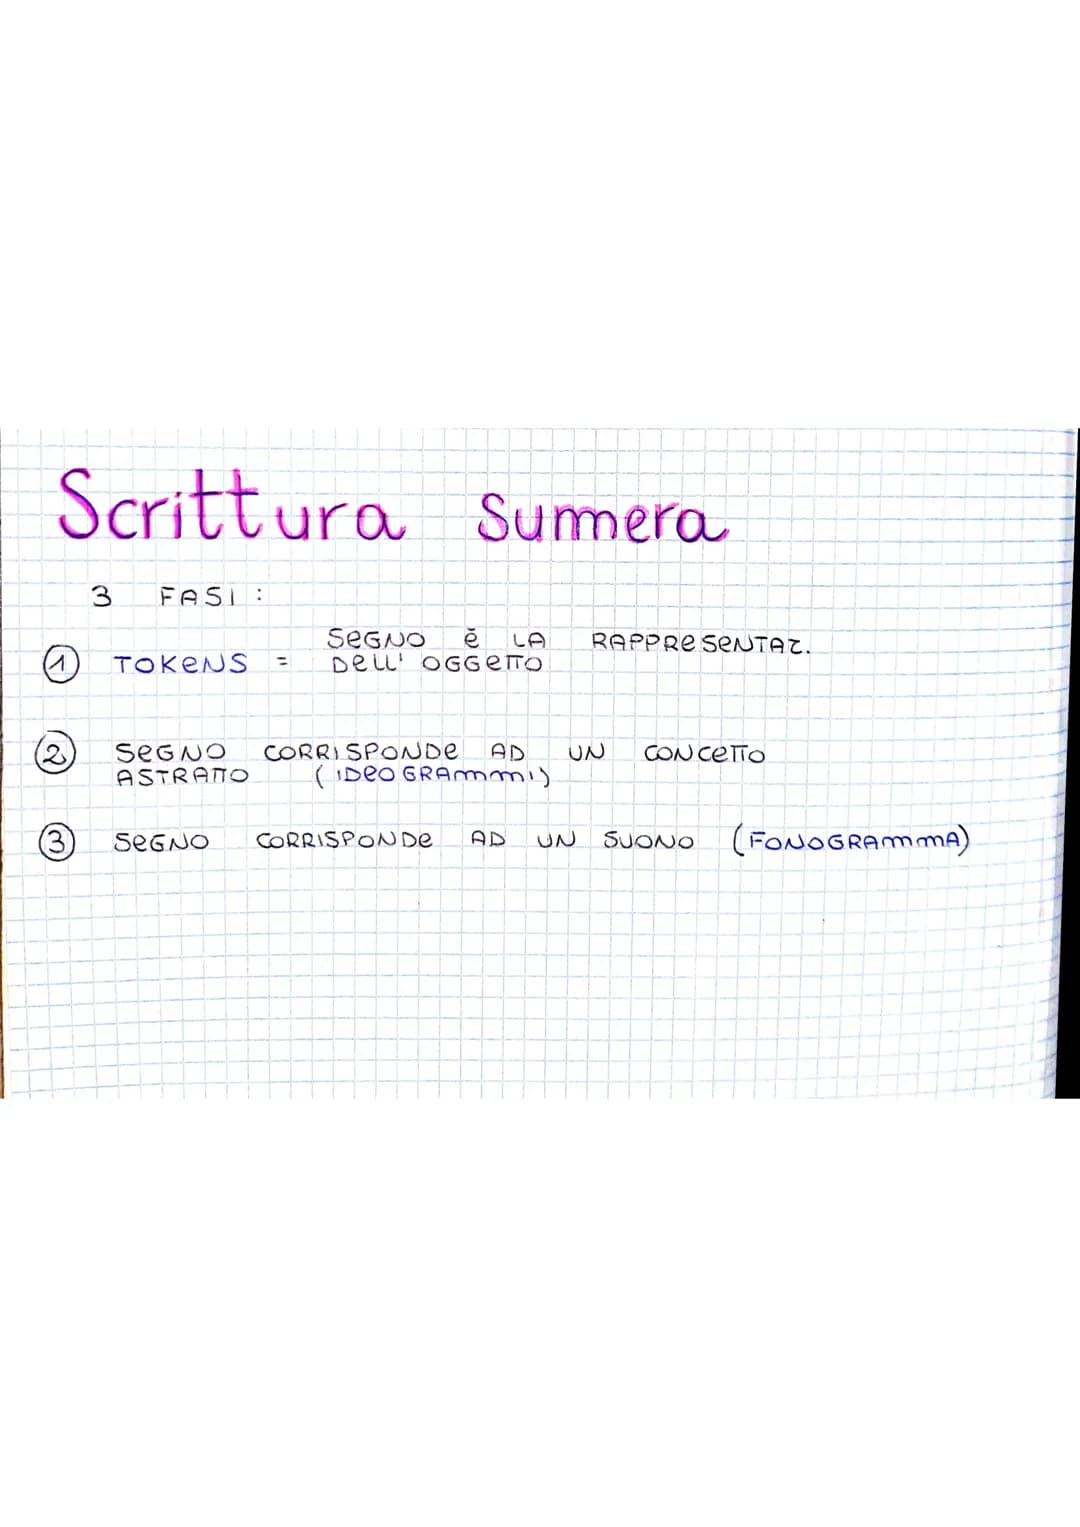 Scrittura Sumera
3 FASI :
SEGNO è LA RAPPRESENTAZ.
① TOKENS = DELL' OGGETTO
② SEGNO CORRISPONDE AD UN CONCETTO
ASTRATTO (IDEOGRAMMI)
③ SEGNO CORRISPONDE AD UN SUONO (FONOGRAMMA)